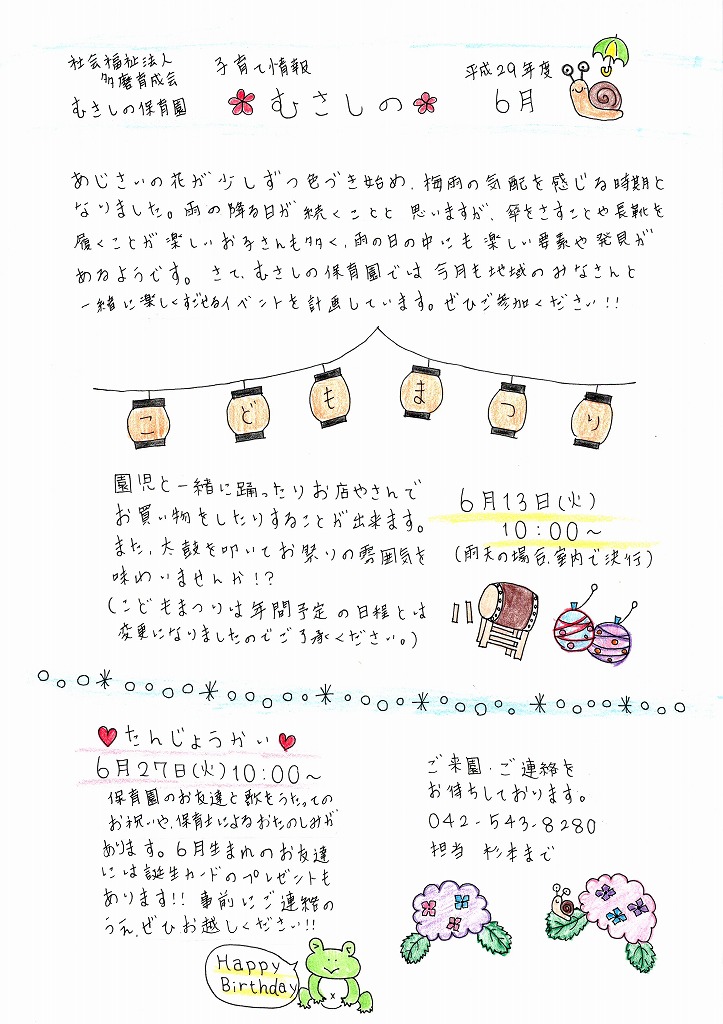 社会福祉法人
多磨育成会
むさしの保育園
子育て情報
むさしの
平成29年度
6月
あじさいの花が少しずつ色づき始め、梅雨の気配を感じる時期と
なりました。雨の降る日が続くことと思いますが、傘をさすことや長靴を
履くことが楽しいお子さんも多く、雨の日の中にも楽しい要素や発見が
あるようです。さて、むさしの保育園では今月も地域のみなさんと
一緒に楽しくすごせるイベントを計画しています。ぜひご参加ください!!
こどもまつり
園児と一緒に踊ったりお店やさんで
お買い物をしたりすることが出来ます。
また、太鼓を叩いてお祭りの雰囲気を
味わいませんか!?
(こどもまつりは年間予定の日程とは
変更になりましたのでご了承ください。)
6月13日(火)
10:00~
(雨天の場合、室内で決行)
たんじょうかい
6月27日(火)10:00~
保育園のお友達と歌をうたっての
お祝いや、保育士によるおたのしみが
あります。6月生まれのお友達
には誕生カードのプレゼントも
あります!!事前にご連絡の
うえ、ぜひお越しください!!
Happy
Birthday
ご来園・ご連絡を
お待ちしております。
042-543-8280
担当 杉本まで